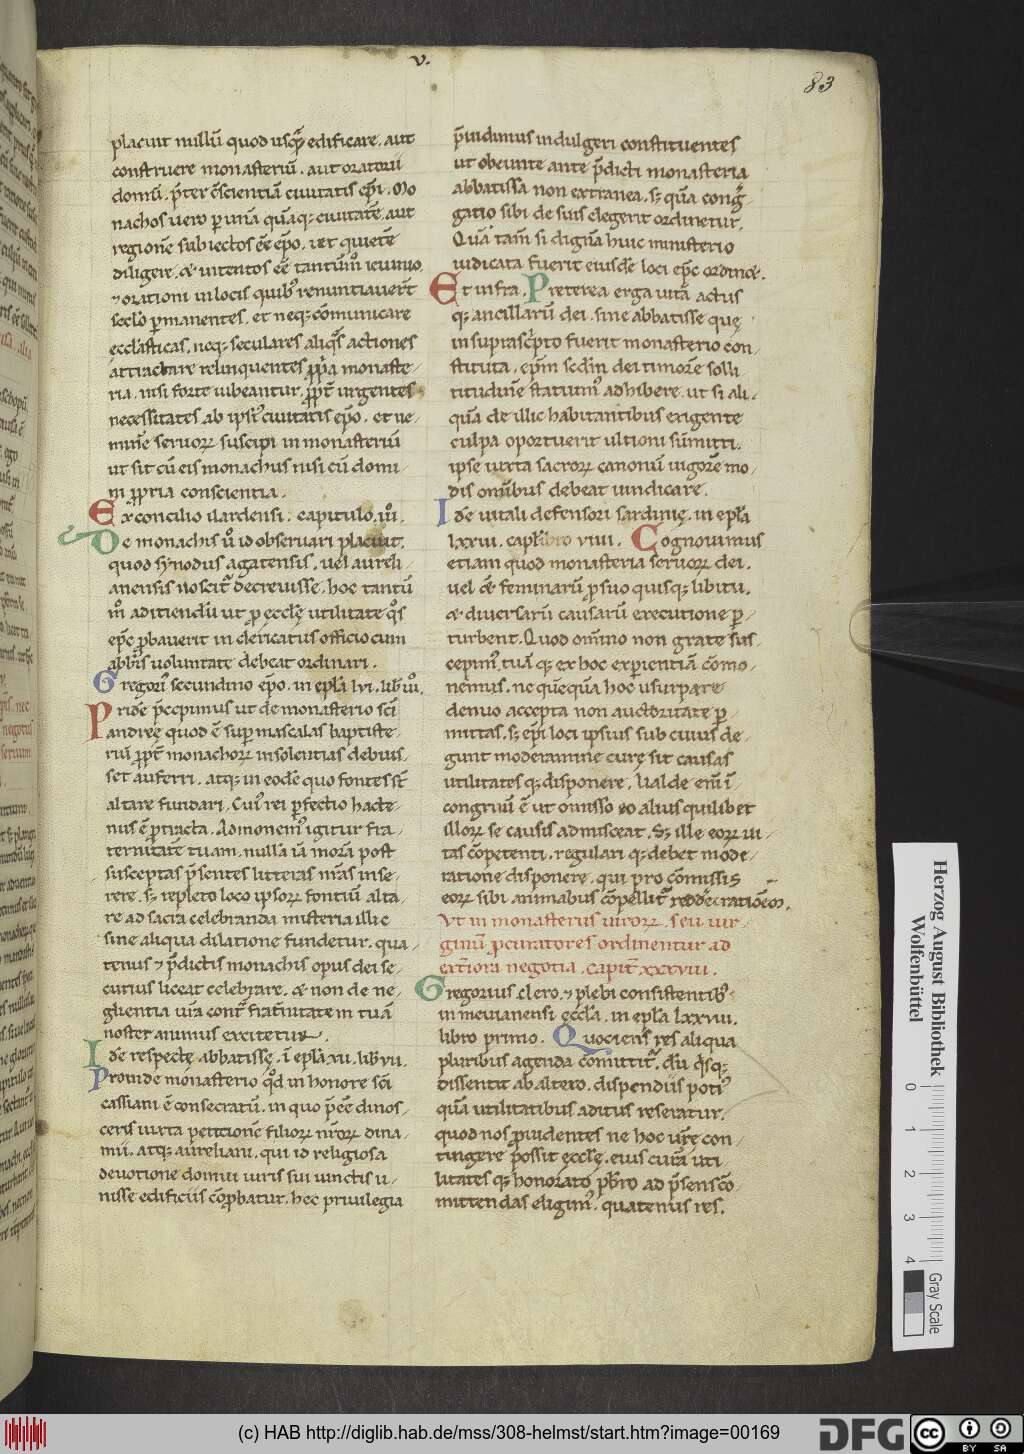 v.
83
placuit nullū quod usq̄ edificare. aut
construere monasteriū. aut oratorii
domū. p̄ter c̄scientiā ciuitatis ep̄i. Mo
nachos uero p unā quāq; ciuitatē aut
regionē subiectos eē ep̄o. & quietē
diligere. & intentos eē tantūm̊ ieiunio
& orationi in locis quib; renuntiauer̄t
sec̄lo p̱manentes. et neq; cōmunicare
eccl̄asticas. neq; seculares aliq̄s actiones
attractare relinquentes ꝓp̄a monaste
ria. nisi forte iubeantur. ꝓpt̄ urgentes
necessitates ab ipsi᷒ ciuitatis ep̄o. et ne
minē seruorꝝ suscipi in monasteriū
ut sit cū eis monachus nisi cū domi
ni ꝓpria conscientia.
Ex concilio ilardensi. capitulo. iii.
De monachis ū id obseruari placuit.
quod synodus agatensis. uel aureli
anensis noscit᷑ decreuisse. hoc tantū
m̊ aditiendū ut ꝓ ecclę utilitate q̊s
ep̄c ꝓbauerit in clericatus officio cum
abb̄is uoluntate debeat ordinari.
Gregori᷒ secundino ep̄o. in epl̄a lvi. lib̄ viii.
Pridē p̄cepimus ut de monasterio sc̄i
andreę quod ē sup mascalas baptiste
riū ꝓpt̄ monachorꝝ insolentias debuis
set auferri. atq; in eodē quo fontes sr̄
altare fundari. Cui᷒ rei p̱fectio hacte
nus ē p̱tracta. Admonem᷒ igitur fra
ternitatē tuam. nulla iā morā post
susceptas p̄sentes litteras n̄ras inse
rere. s; repleto loco ipsorꝝ fontiū alta
re ad sacra celebranda misteria illic
sine aliqua dilatione fundetur. qua
tenus & p̄dictis monachis opus dei se
curius liceat celebrare. & non de ne
glientia ur̄a contr̄ frat̄nitate in tuā
noster animus excitetur.
Idē respectę abbatissę. ī epl̄a xii. lib̄ vii.
Prouide monasterio q̄d in honore sc̄i
cassiani ē consecratū. in quo p̄eē dinos
ceris iuxta petitionē filiorꝝ nr̄orꝝ dina
mii. atq; aureliani. qui id religiosa
deuotione domui iuris sui iunctis u
nisse edificiis cōp̱batur. hec priuilegia
p̄uidimus indulgeri constituentes
ut obeunte ante p̄dicti monasteria
abbatissa non extranea. s; quā cong̅
gatio sibi de suis elegerit ordinetur.
Quā tam̄ si dignā huic ministerio
iudicata fuerit eiusdē loci ep̄c ordinet.
Et infra. Preterea erga uitā actus
q; ancillarū dei. sine abbatisse quę
in suprasc̄pto fuerit monasterio con
stituta. ep̄m sc̄dm dei timorē solli
titudinē statuim᷒ adhibere. ut si ali
quā de illic habitantibus exigente
culpa oportuerit ultioni sūmitti.
ipse iuxta sacrorꝝ canonū uigorē mo
dis omībus debeat uindicare.
Idē uitali defensori sardinię. in epl̄a
lxxiii. cap̄ libro viiii. Cognouimus
etiam quod monasteria seruorꝝ dei.
uel & feminarū p suo quisq; libitu.
& diuersarū causarū executione p̱
turbent. Quod om̄ino non grate sus
cepim᷒. tuā q; ex hoc exp̱ientiā cōmo
nemus. ne quēquā hoc usurpare
denuo accepta non auctoritate p̱
mittas. s; ep̄i loci ipsius sub cuius de
gunt moderamine curę sit causas
utilitates q; disponere. Ualde em̄ ī
congruū ē ut omisso eo alius quilibet
illorꝝ se causis admisceat. S; ille eorꝝ ui
tas cōpetenti. regulari q; debet mode
ratione disponere. qui pro cōmissis
eorꝝ sibi animabus cōpellit᷑ reddere rationem.
Ut in monasteriis uirorꝝ. seu uir
ginū p̱curatores ordinentur ad
ext̄iora negotia. capit̄ xxxviii.
Gregorius clero. & plebi consistentib᷒
in meuianensi eccl̄a. in epl̄a lxxviii.
libro primo. Quociens res aliqua
pluribus agenda cōmittit᷑. dū q̄sq;
dissentit ab altero. dispendiis poti᷒
quā utilitatibus aditus reseratur.
quod nos ꝓuidentes ne hoc ur̄ę con
tingere possit ecclę. eius curā uti
litates q; honorato pb̄ro ad p̄sens cō
mittendas eligim᷒. quatenus res.
Herzog August Bibliothek
Wolfenbüttel
0 1 2 3 4
Gray Scale
(c) HAB http://diglib.hab.de/mss/308-helmst/start.htm?image=00169
DFG
cc BY SA